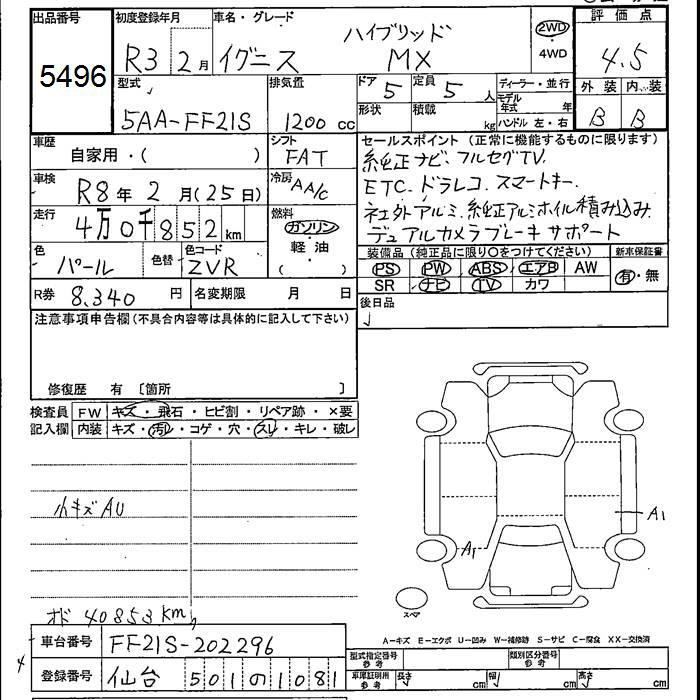 出品番号
5496
初度登録年月
R3 2月
車名・グレード
イグニス ハイブリッド MX
2WD
・
4WD
評価点
4.5
型式
5AA-FF21S
排気量
1200 cc
ドア
5
定員
5 人
形状
積載
kg
ディーラー・並行
モデル年式 年
ハンドル 左・右
外装 内装
B B
車歴
自家用・( )
シフト
FAT
車検
R8年 2月(25日)
冷房
AA/C
走行
4万0千852 km
燃料
ガソリン
軽油
( ・ )
色
パール
色替
色コード
ZVR
R券 8,340 円
名変期限 月 日
セールスポイント (正常に機能するものに限ります)
純正ナビ.フルセグTV.
ETC.ドラレコ.スマートキー.
社外アルミ.純正アルミホイル積み込み.
デュアルカメラブレーキサポート
装備品 (純正品に限り〇をつけてください)
新車保証書
PS PW ABS エアB AW
SR ナビ TV カワ
有・無
後日品
注意事項申告欄(不具合内容等は具体的に記入して下さい)
修復歴 有 [箇所 ]
検査員記入欄
FW キズ・飛石・ヒビ割・リペア跡・×要
内装 キズ・汚レ・コゲ・穴・スレ・キレ・破レ
小キズ AU
オド 40853km
A1
A1
スペア
車台番号 FF21S-202296
登録番号 仙台 501の1081
A-キズ E-エクボ U-凹み W-補修跡 S-サビ C-腐食 XX-交換済
型式指定番号 参考
類別区分番号 参考
車庫証明用 参考
長さ cm 幅 cm 高さ cm